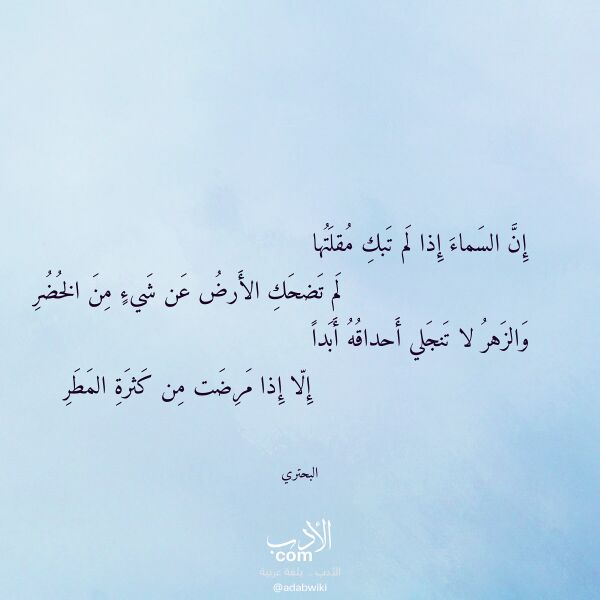 إِنَّ السَماءَ إِذا لَم تَبكِ مُقلَتُها
لَم تَضحَكِ الأَرضُ عَن شَيءٍ مِنَ الخُضُرِ
وَالزَهرُ لا تَنجَلي أَحداقُهُ أَبَداً
إِلّا إِذا مَرِضَت مِن كَثرَةِ المَطَرِ
البحتري
الأدب
com
الأدب .. بلغة عربية
@adabwiki